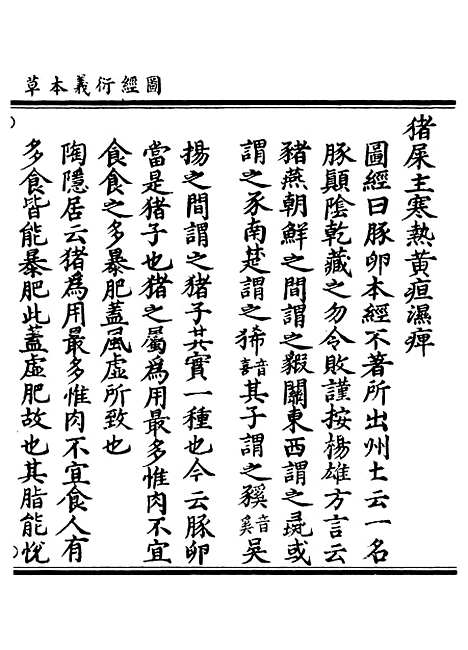 圖經衍義本草
猪屎主寒熱黃疸濕痺
圖經曰豚卵本經不著所出州土云一名
豚顛陰乾藏之勿令敗謹按楊雄方言云
豬燕朝鮮之間謂之豭關東西謂之彘或
謂之豕南楚謂之狶音喜其子謂之豯音奚吳
揚之間謂之猪子其實一種也今云豚卵
當是猪子也猪之屬為用最多惟肉不宜
食食之多暴肥蓋風虛所致也
陶隱居云猪為用最多惟肉不宜食人有
多食皆能暴肥此蓋虛肥故也其脂能悅